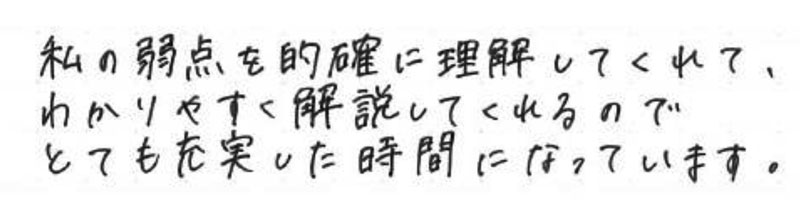 私の弱点を的確に理解してくれて、
わかりやすく解説してくれるので
とても充実した時間になっています。